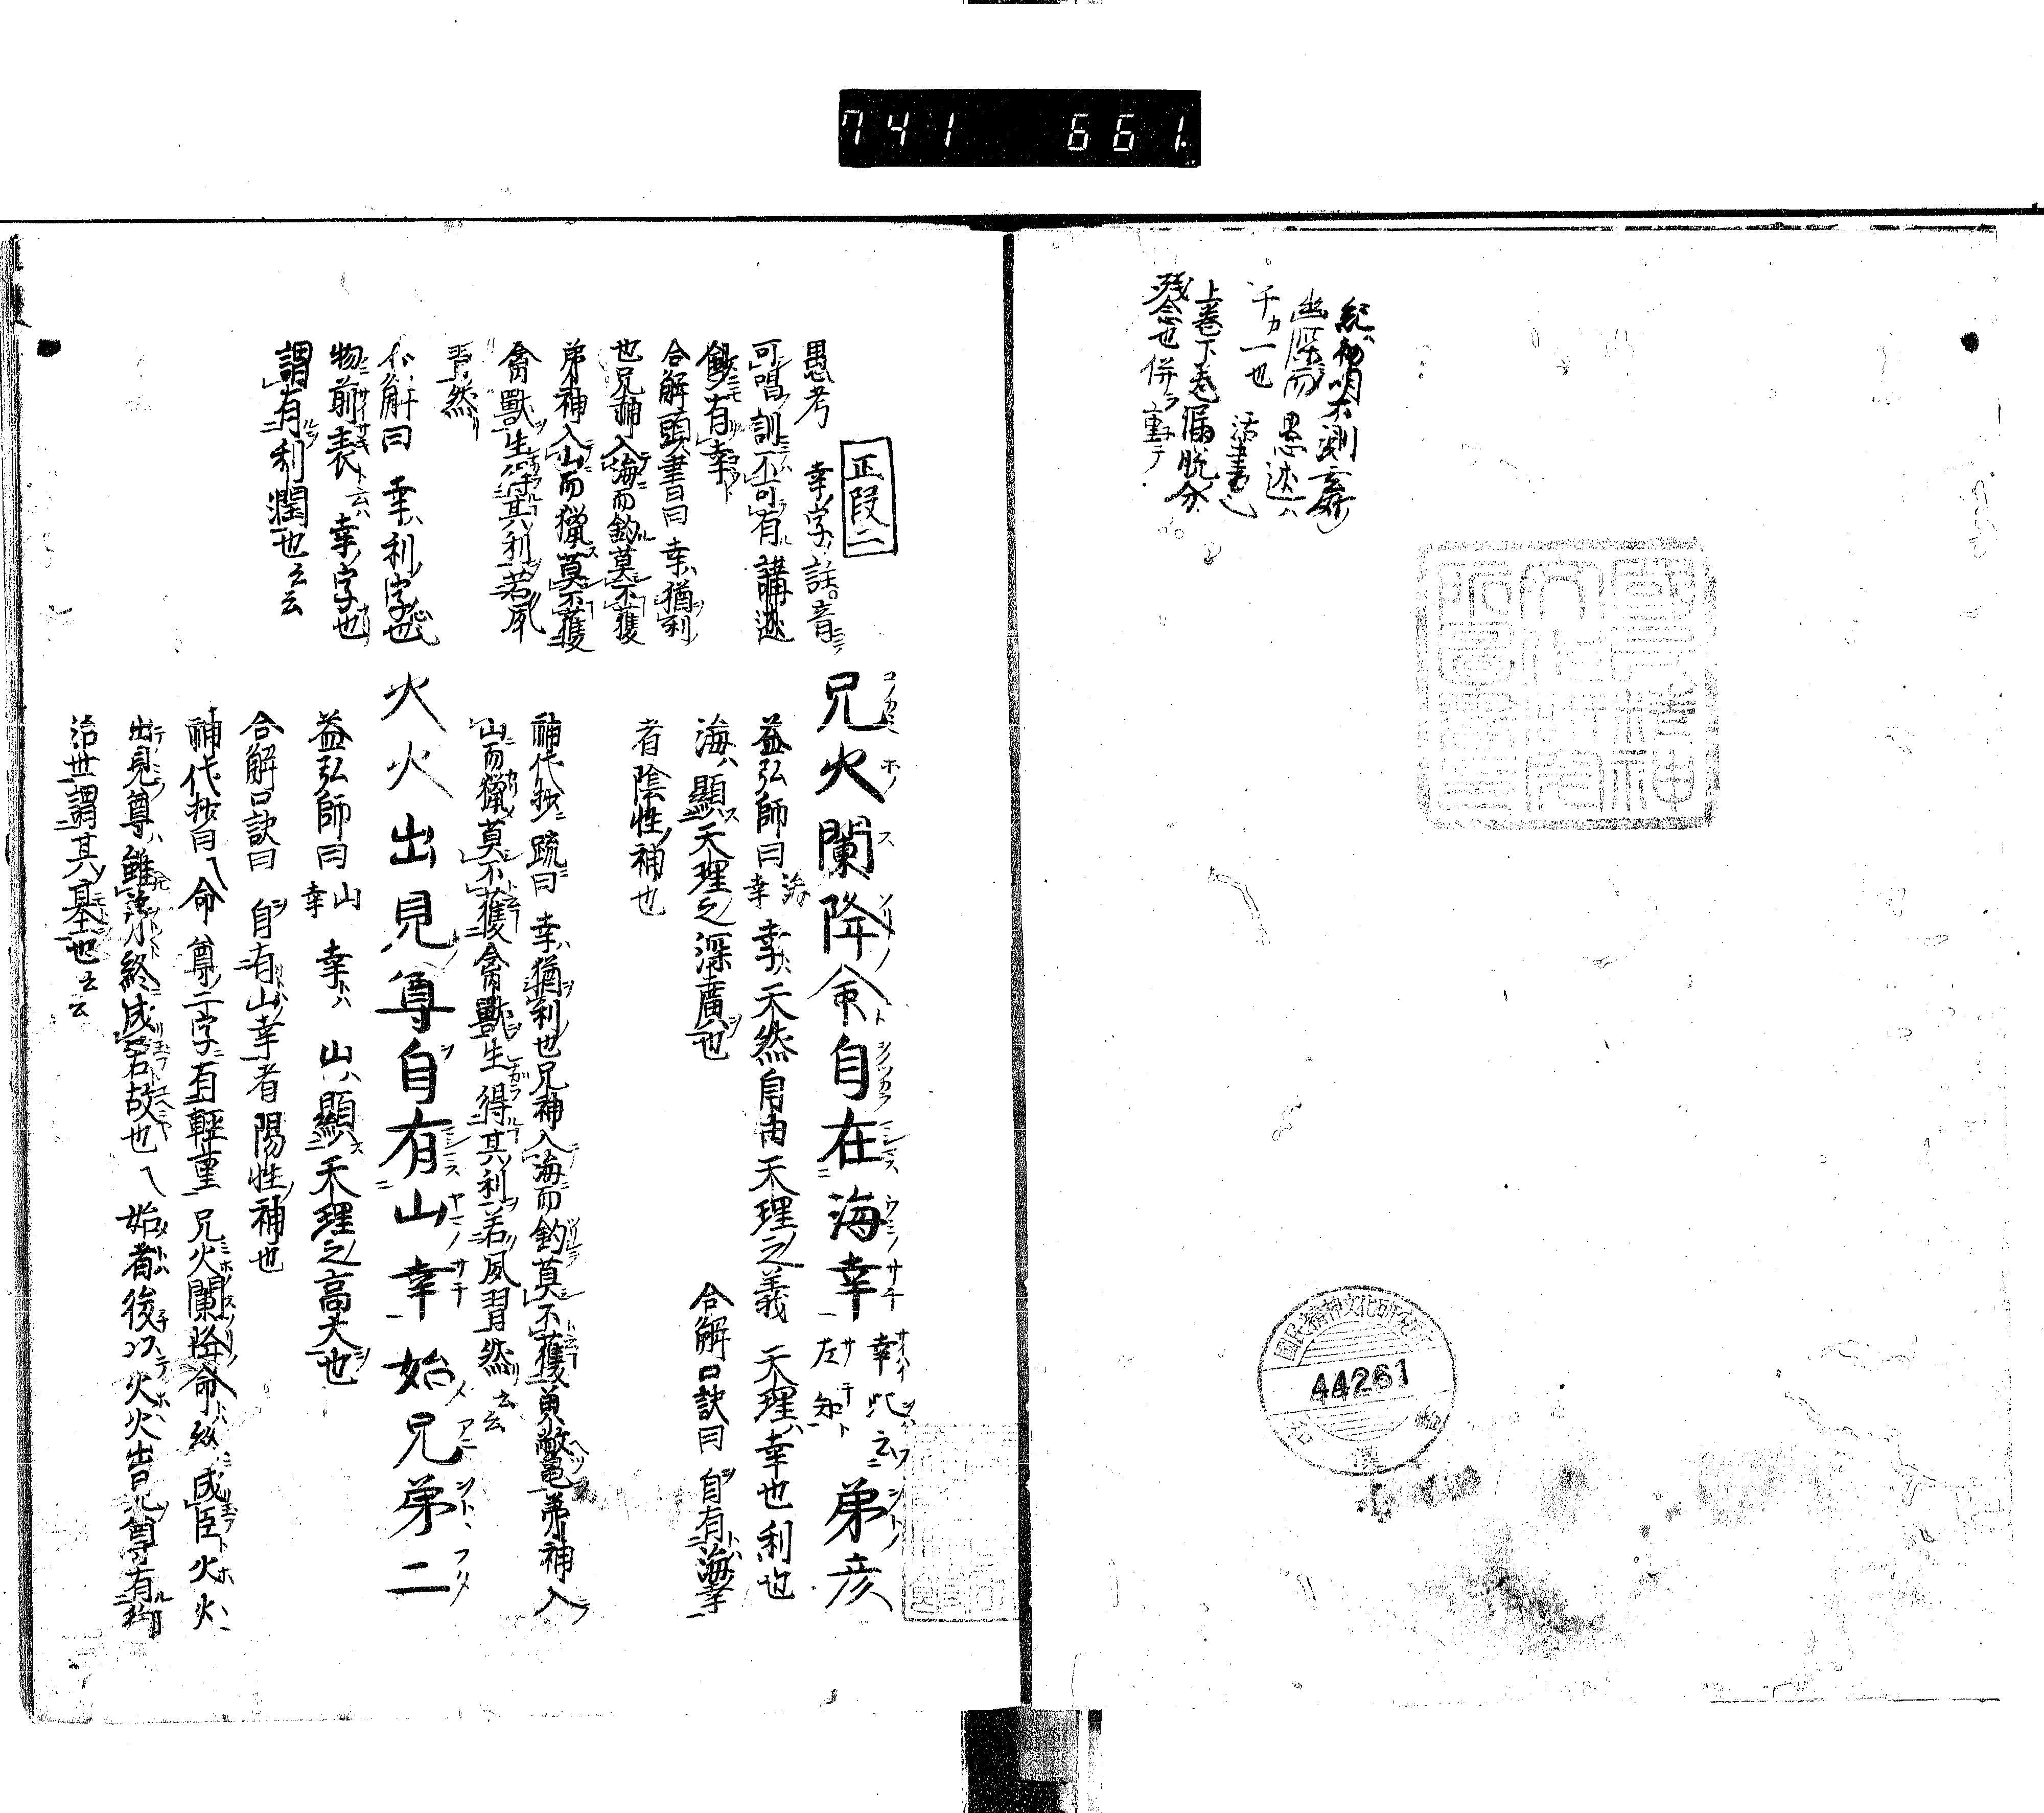 741 661
上巻下巻漏脱分
残念也併ラ重テ
國民精神文化研究所
44261
正段二
愚考 幸ノ字ノ註音ニ
可唱訓ニ不可有講述
鈔ニモ有幸
合解頭書曰幸ハ猶利
也兄神入海而釣莫不獲
弟神入山而獵莫不獲
禽獸生得其利若夙
習然
曰幸ハ利ノ字也
物前表ト云ハ幸ノ字也
謂有利潤也云云
兄火闌降命自在海幸 幸此云左知 弟彦
益弘師曰 海幸 幸ハ天然自由天理之義天理ハ幸也利也
海ハ顯天理之深廣也 合解口訣曰自有海幸
者陰性ノ神也
神代抄ニ疏曰幸ハ猶利也兄神入海而釣莫不獲魚敝黽弟神入
山而獵莫不獲禽獸生得其利若夙習然云云
火火出見尊自有山幸始兄弟二
益弘師曰 山幸 幸トハ山ハ顯天理之高大也
合解口訣曰自有山幸者陽性ノ神也
神代抄曰命尊ノ二字ニ有輕重兄火闌降命ハ終成臣火火
出見尊ハ雖弟終成君故也始者後以火火出見尊有御
治世謂其基也云云